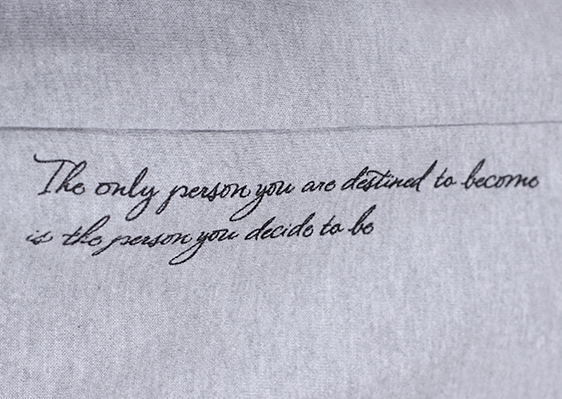 The only person you are destined to become
is the person you decide to be